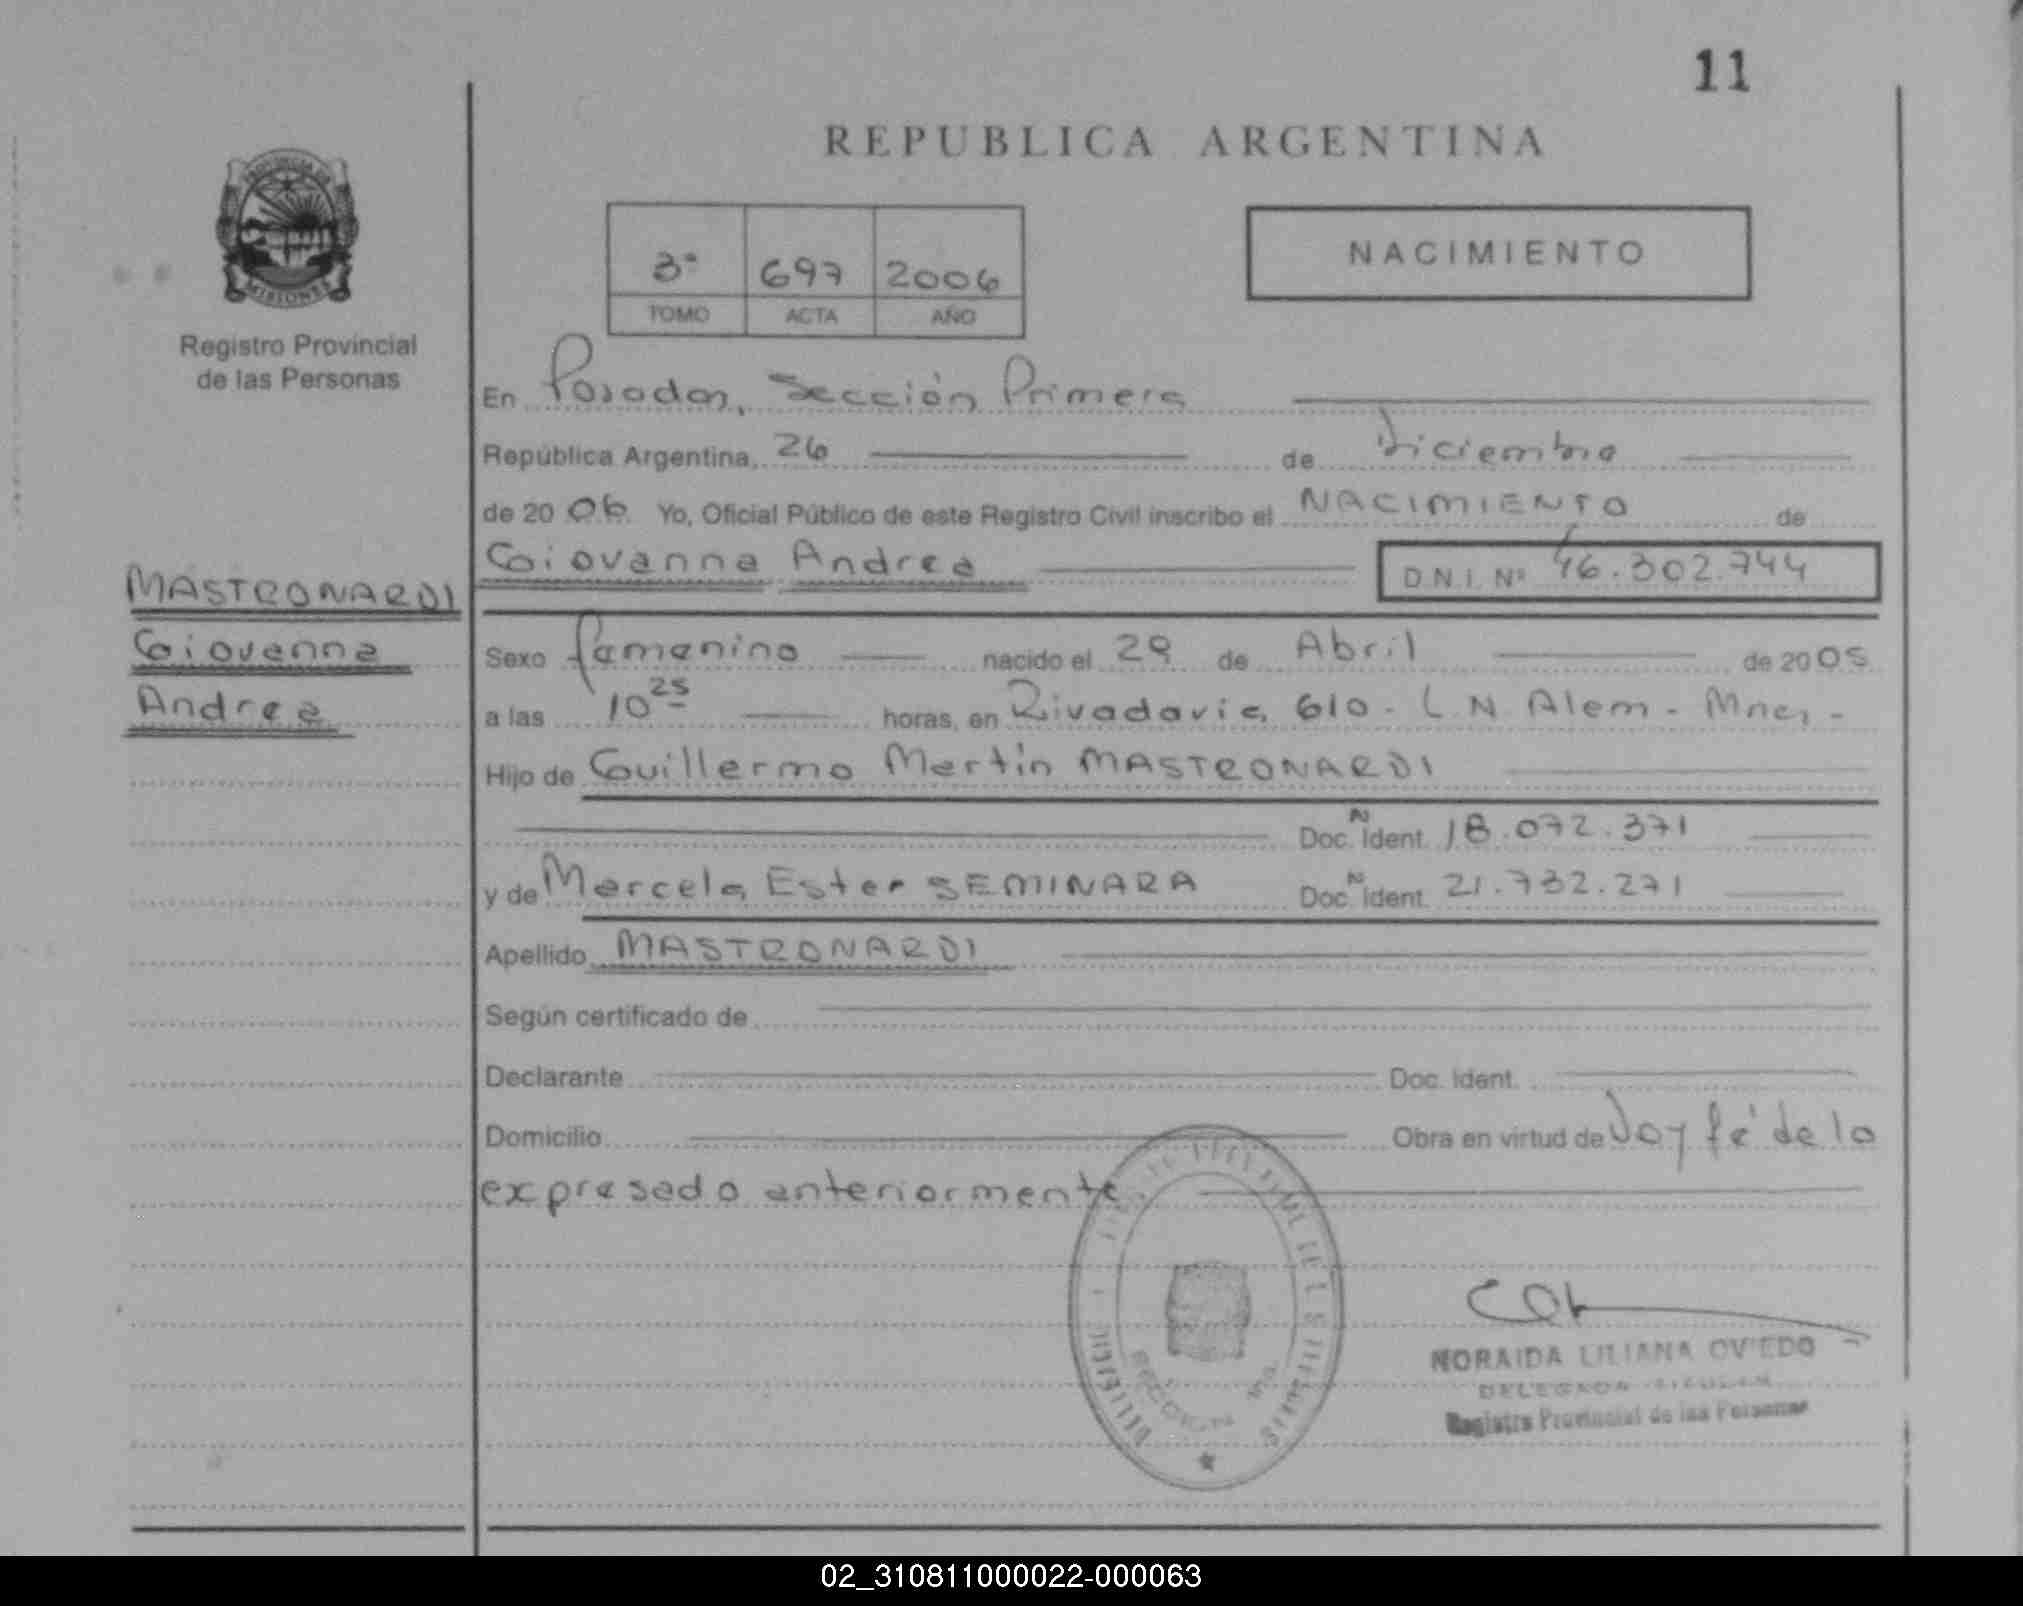 11
REPUBLICA ARGENTINA
PROVINCIA DE
MISIONES
Registro Provincial
de las Personas
3ª 697 2006
TOMO ACTA AÑO
NACIMIENTO
En Posadas, Sección Primera
República Argentina, 26 de Diciembre
de 2006 Yo, Oficial Público de este Registro Civil inscribo el NACIMIENTO de
Giovanna Andrea D.N.I. Nº 46.302.744
MASTRONARDI
Giovanna
Andrea
Sexo femenino nacido el 29 de Abril de 2005
a las 10 25 horas, en Rivadavia 610 - L.N. Alem - Mnes -
Hijo de Guillermo Martín MASTRONARDI
Doc. N Ident. 18.072.371
y de Marcela Ester SEMINARA Doc. N Ident. 21.732.271
Apellido MASTRONARDI
Según certificado de
Declarante Doc. Ident.
Domicilio Obra en virtud de Doy fé de lo
expresado anteriormente
NORAIDA LILIANA OVIEDO
DELEGADA TITULAR
Registro Provincial de las Personas
02_310811000022-000063